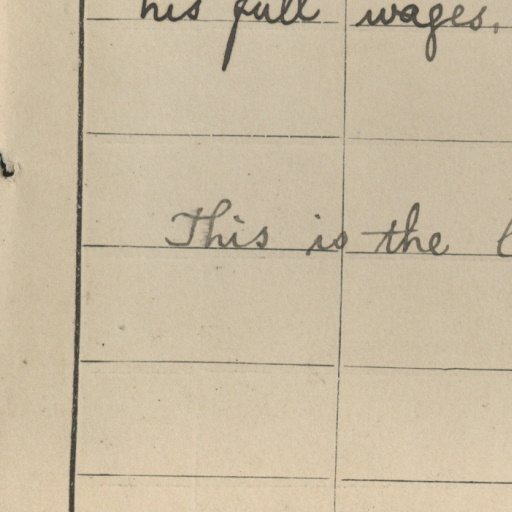 his full wages.
This is the